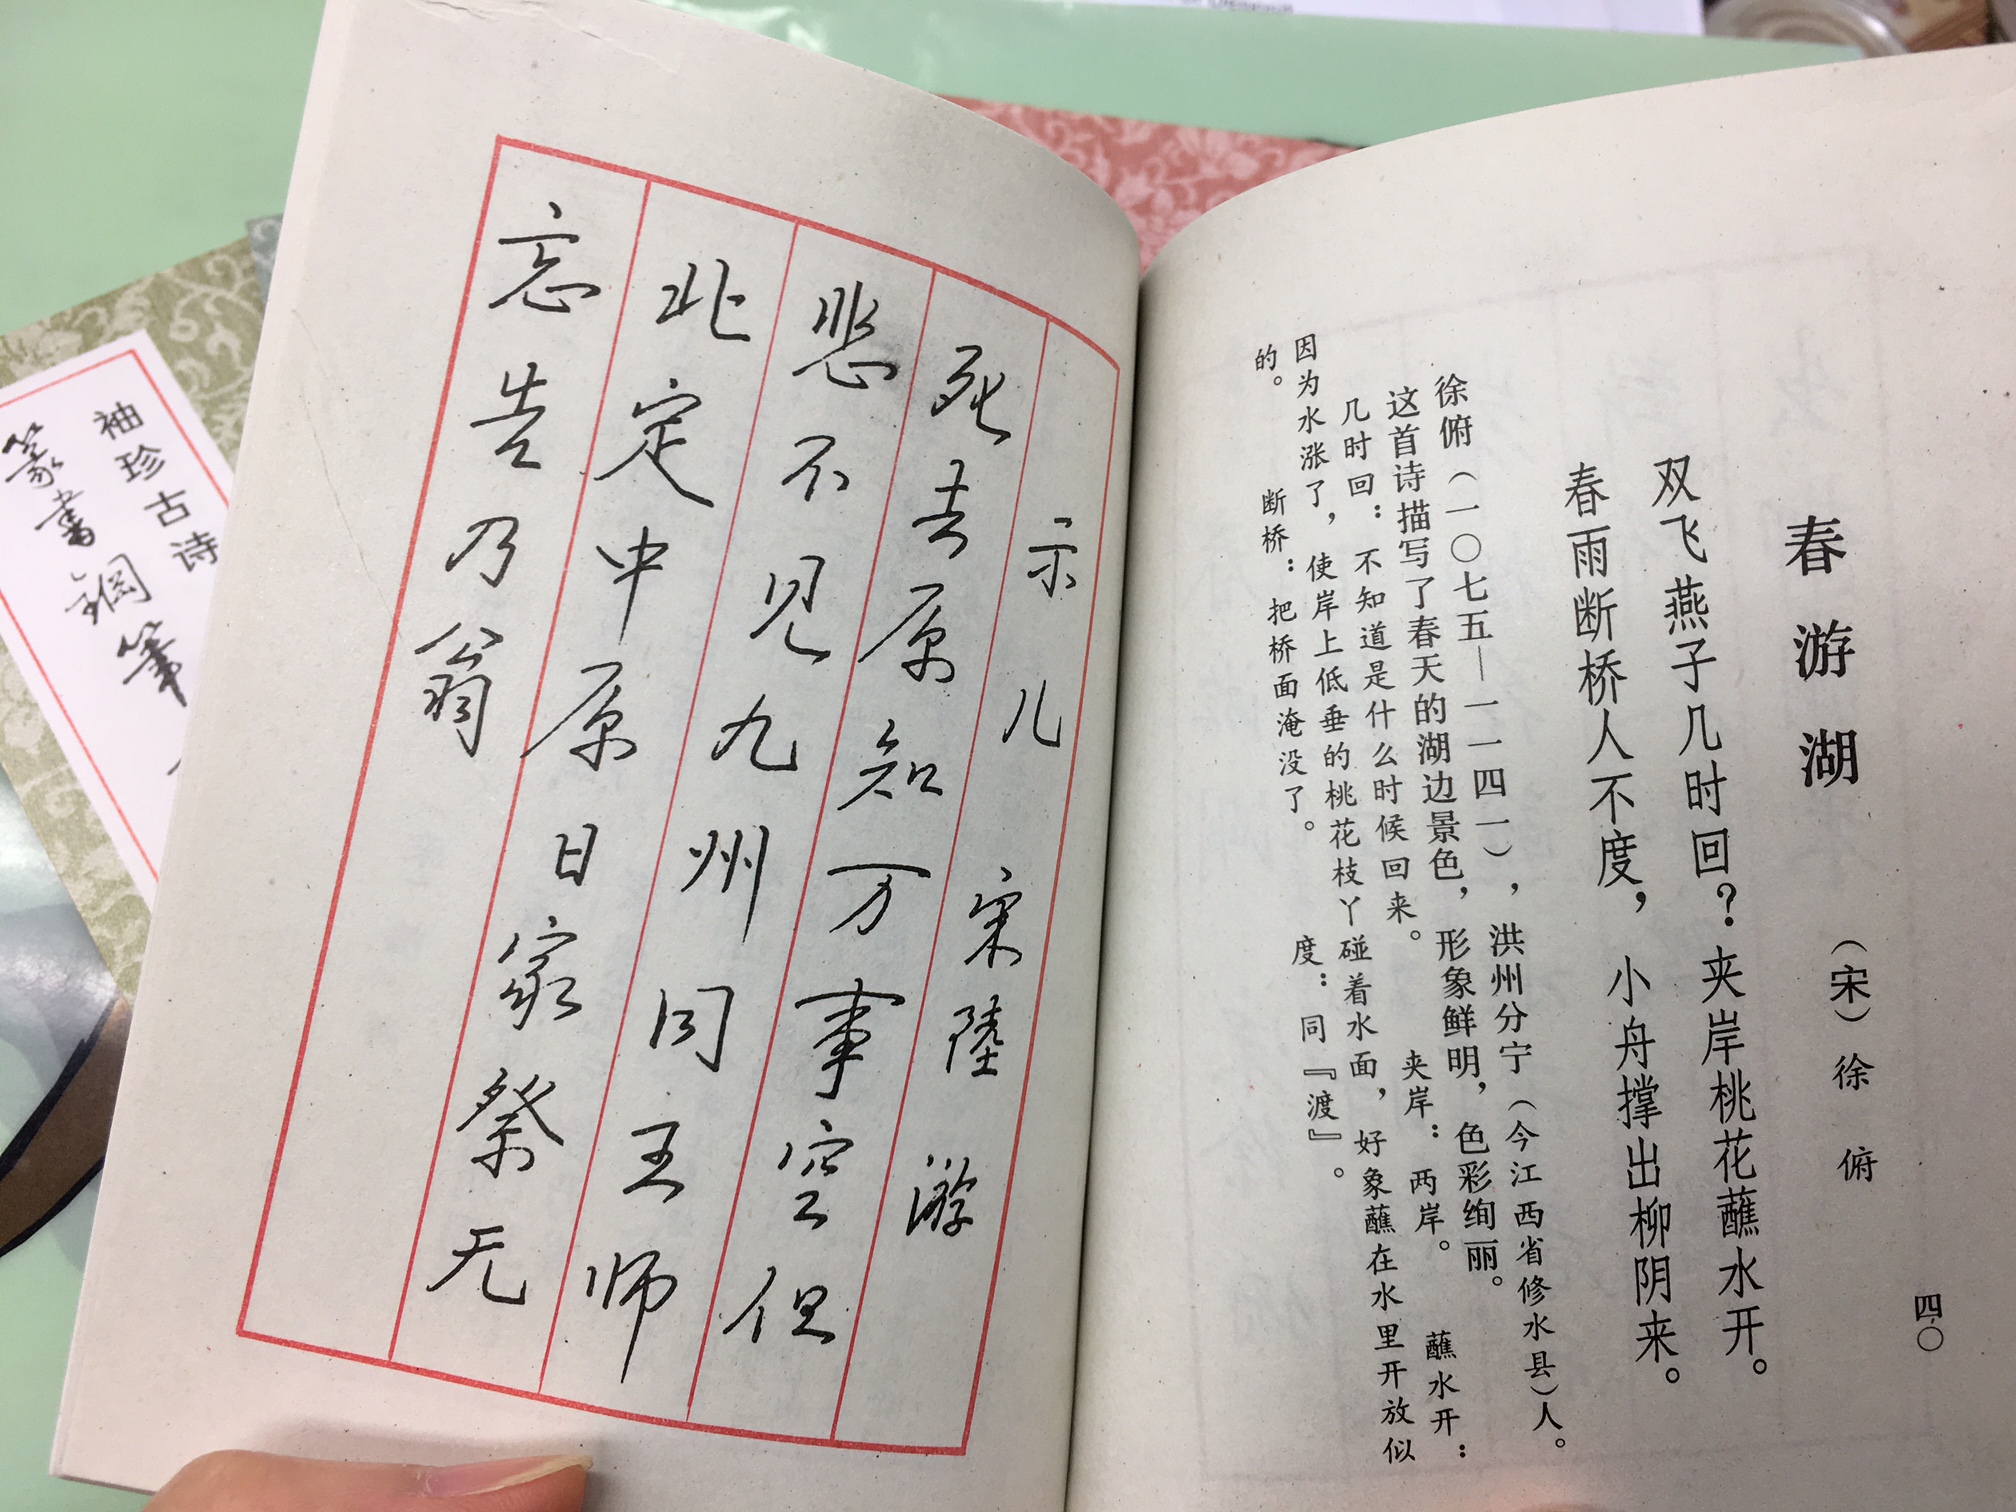 春游湖 （宋）徐俯
双飞燕子几时回？夹岸桃花蘸水开。
春雨断桥人不度，小舟撑出柳阴来。
徐俯（一〇七五—一一四一），洪州分宁（今江西省修水县）人。
这首诗描写了春天的湖边景色，形象鲜明，色彩绚丽。
几时回：不知道是什么时候回来。 夹岸：两岸。 蘸水开：
因为水涨了，使岸上低垂的桃花枝丫碰着水面，好象蘸在水里开放似
的。 断桥：把桥面淹没了。 度：同『渡』。
四〇
示儿 宋陸游
死去原知万事空但
悲不见九州同王师
北定中原日家祭无
忘告乃翁
袖珍古诗
篆書鋼筆